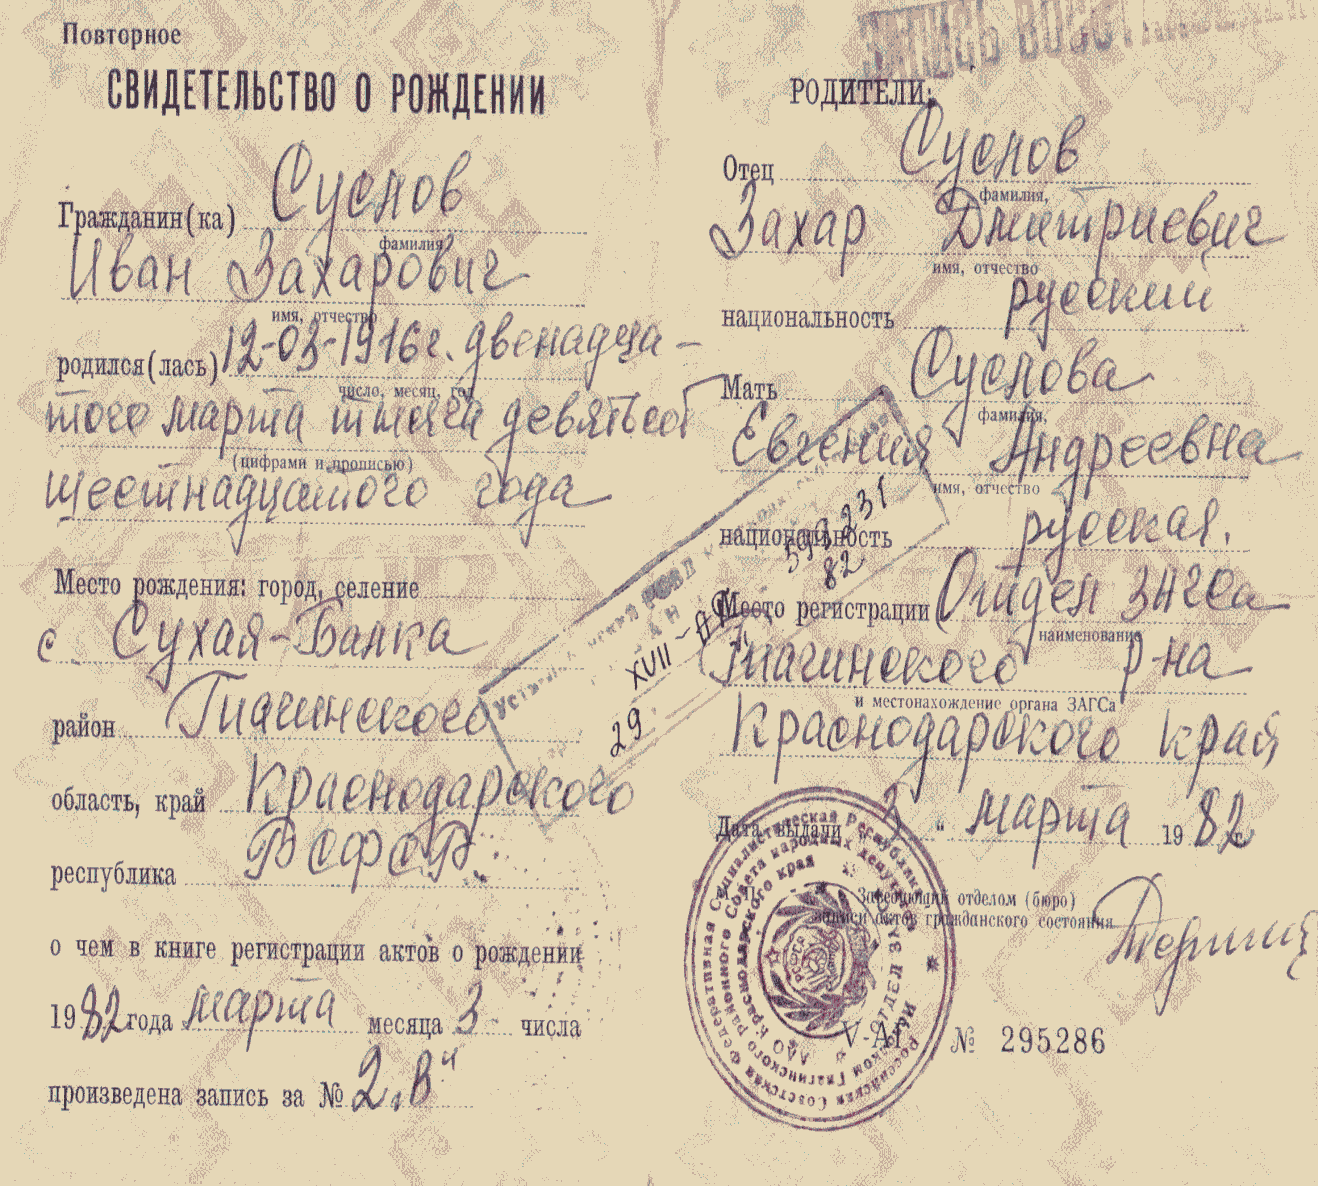 Повторное
СВИДЕТЕЛЬСТВО О РОЖДЕНИИ
Гражданин(ка) Суслов
фамилия
Иван Захарович
имя, отчество
родился(лась) 12-03-1916г. двенадца-
число, месяц, год
того марта тысяча девятьсот
(цифрами и прописью)
шестнадцатого года
Место рождения: город, селение
с Сухая-Балка
район Гиагинского
область, край Краснодарского
республика РСФСР.
о чем в книге регистрации актов о рождении
19 82 года марта месяца 3 числа
произведена запись за № 2 "В"
ЗАПИСЬ ВОССТ
РОДИТЕЛИ:
Отец Суслов
фамилия,
Захар Дмитриевич
имя, отчество
национальность русский
Мать Суслова
фамилия,
Евгения Андреевна
имя, отчество
национальность русская.
Место регистрации Отдел ЗАГСа
наименование
Гиагинского р-на
и местонахождение органа ЗАГСа
Краснодарского край
Дата выдачи " 3 " марта 19 82 г.
Заведующий отделом (бюро)
записи актов гражданского состояния
V-АГ № 295286
29 XVII-АГ
593231
82
Российская Советская Федеративная Социалистическая Республика
Исполком Гиагинского районного Совета народных депутатов
ААО Краснодарского края
ОТДЕЛ ЗАГС